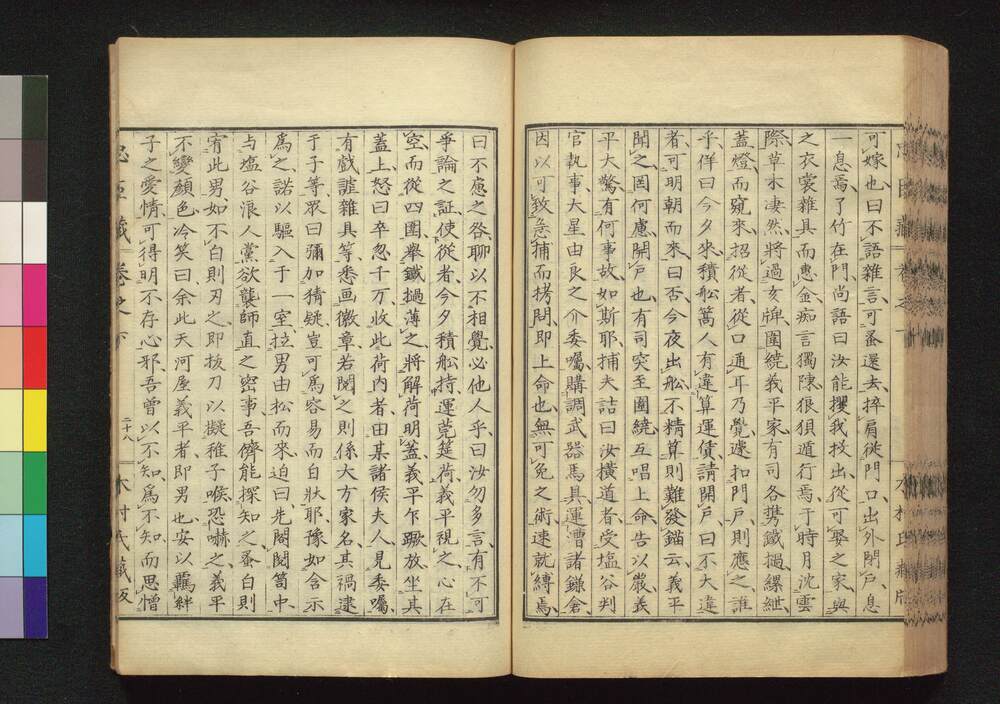 可嫁也曰不語雜言可蚤還去捽肩從門口出外閉戶息
一息焉了竹在門尚語曰汝能攖我技出從可娶之家與
之衣裳雜具而惠金痴言獨陳狼狽遁行焉于時月沈雲
際草木凄然將過女牌圍繞義平家有司各携鐵撾縲紲
蓋燈而窺來招從者從口通耳乃覺遽扣門戶則應之誰
乎佯曰今夕來積舩篙人有違算運賃請開戶曰不大違
者可明朝而來曰否今夜出舩不精算則難發錨云義平
聞之固何慮開戶也有司突至圍繞互唱上命告以嚴義
平大驚有何事故如斯耶捕夫詰曰汝橫道者受塩谷判
官執事大星由良之介委囑購調武器馬具運漕諸鎌倉
因以可致急捕而拷問即上命也無可免之術速就縛焉
曰不慮之咎聊以不相覺必他人乎曰汝勿多言有不可
爭論之証使從者今夕積舩持運莞筵荷義平視之心在
空而從四圍舉鐵撾薄之將解荷明蓋義平乍蹶放坐其
蓋上怒曰卒忽千万收此荷内者由某諸侯夫人見委囑
有戲謔雜具等悉画徽章若閱之則係大方家名其禍逮
于子等眾曰彌加猜疑豈可爲容易而自狀耶豫如含示
爲之諾以驅入于一室拉男由松而來迫曰先閤閱筥中
与塩谷浪人黨欲襲師直之密事吾儕能探知之蚤白則
宥此男如不白則刃之即拔刀以擬稚子喉恐嚇之義平
不變顏色冷笑曰余此天河屋義平者即男也安以羈絆
子之愛情可得明不存心邪吾曾以不知爲不知而思憎
忠臣藏 卷之下 二十八 木村氏藏版